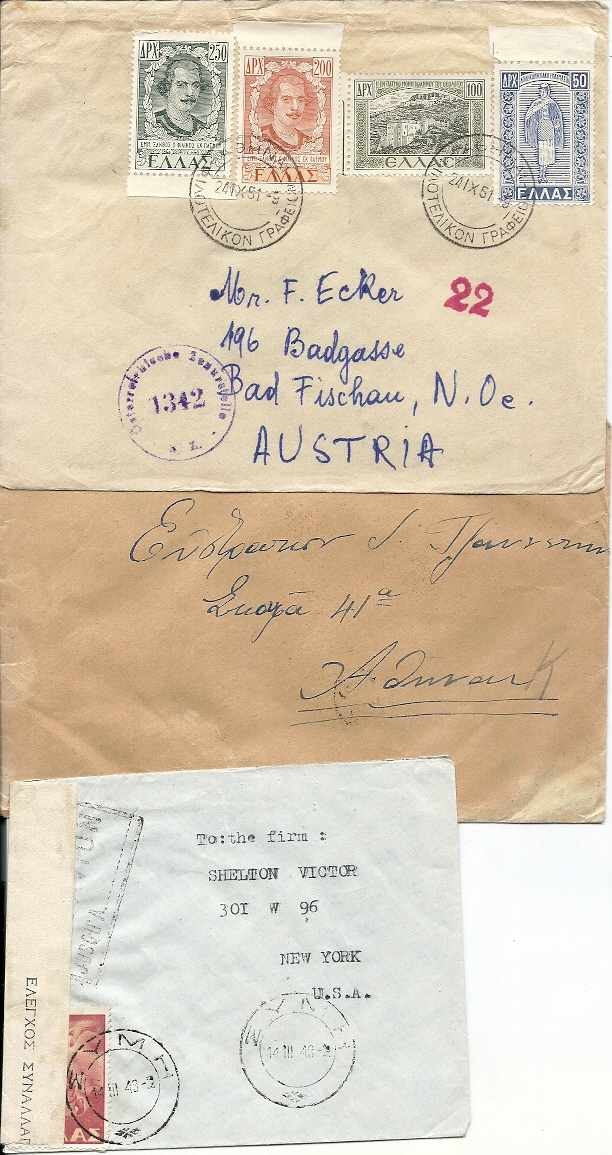 ΔΡΧ 250
ΕΛΛΑΣ
ΔΡΧ 200
ΕΛΛΑΣ
ΔΡΧ 100
ΕΛΛΑΣ
ΔΡΧ 50
ΕΛΛΑΣ
24 IX 51
ΦΙΛΟΤΕΛΙΚΟΝ ΓΡΑΦΕΙΟΝ
24 IX 51
ΦΙΛΟΤΕΛΙΚΟΝ ΓΡΑΦΕΙΟΝ
Mr. F. Ecker
22
196 Badgasse
Bad Fischau, N. Oe.
AUSTRIA
Österreichische Zensurstelle
1342
41α
Αθήνας
To:the firm :
SHELTON VICTOR
30I W 96
NEW YORK
U.S.A.
ΕΛΕΓΧΟΣ ΣΥΝΑΛΛΑΓ
14 III 48
14 III 48